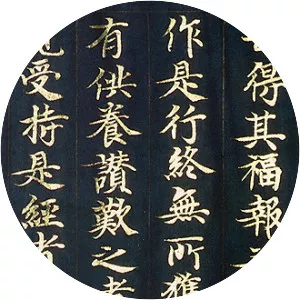 得其福報
作是行終無所獲
有供養讚歎之者
受持是經者